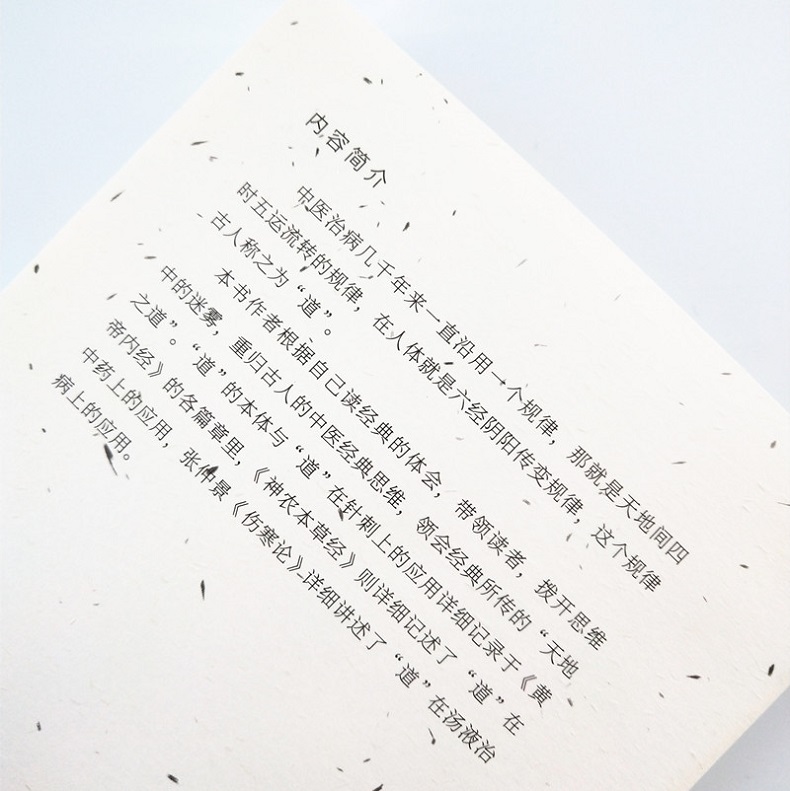 内容简介
中医治病几千年来一直沿用一个规律，那就是天地间四
时五运流转的规律，在人体就是六经阴阳传变规律，这个规律
古人称之为“道”。
本书作者根据自己读经典的体会，带领读者，拨开思维
中的迷雾，重归古人的中医经典思维，领会经典所传的“天地
之道”。“道”的本体与“道”在针刺上的应用详细记录于《黄
帝内经》的各篇章里，《神农本草经》则详细记述了“道”在
中药上的应用，张仲景《伤寒论》详细讲述了“道”在汤液治
病上的应用。